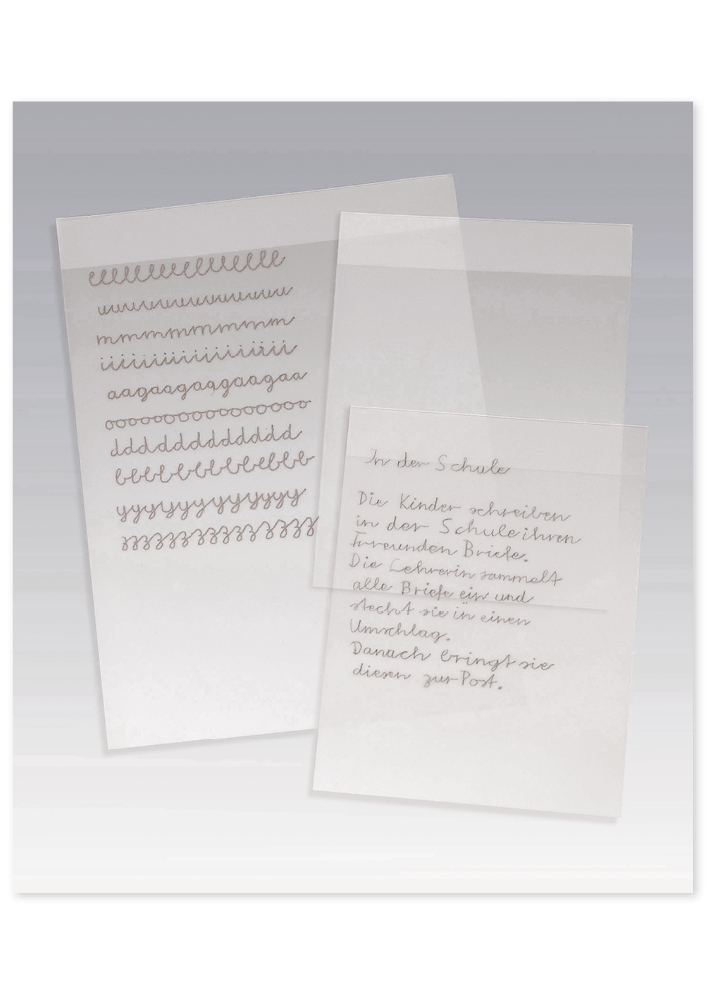 eeeeeeeeeeeeeeee
uuuuuuuuuuuu
mmmmmmmmm
iiiiiiiiiiiiiiii
aagaagaagaagaa
oooooooooooooooo
dddddddddddd
bbbbbbbbbbbb
yyyyyyyyyyyy
zzzzzzzzzzzzz
In der Schule
Die Kinder schreiben
in der Schule ihren
Freunden Briefe.
Die Lehrerin sammelt
alle Briefe ein und
stecht sie in einen
Umschlag.
Danach bringt sie
diesen zur Post.